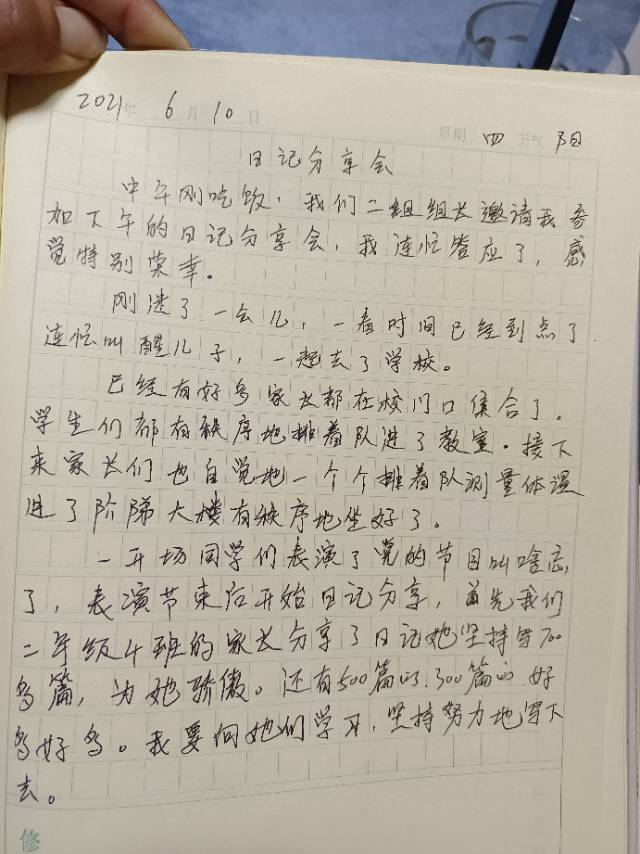 2021年 6月 10日
星期 四 天气 阳
日记分享会
中午刚吃饭，我们二组组长邀请我参
加下午的日记分享会，我连忙答应了，感
觉特别荣幸。
刚迷了一会儿，一看时间已经到点了
连忙叫醒儿子，一起去了学校。
已经有好多家长都在校门口集合了。
学生们都有秩序地排着队进了教室。接下
来家长们也自觉地一个个排着队测量体温
进了阶梯大楼有秩序地坐好了。
一开场同学们表演了党的节目叫啥忘
了，表演节束后开始日记分享，首先我们
二年级4班的家长分享了日记她坚持写700
多篇，为她骄傲。还有500篇的.300篇的.好
多好多。我要向她们学习，坚持努力地写下
去。
修